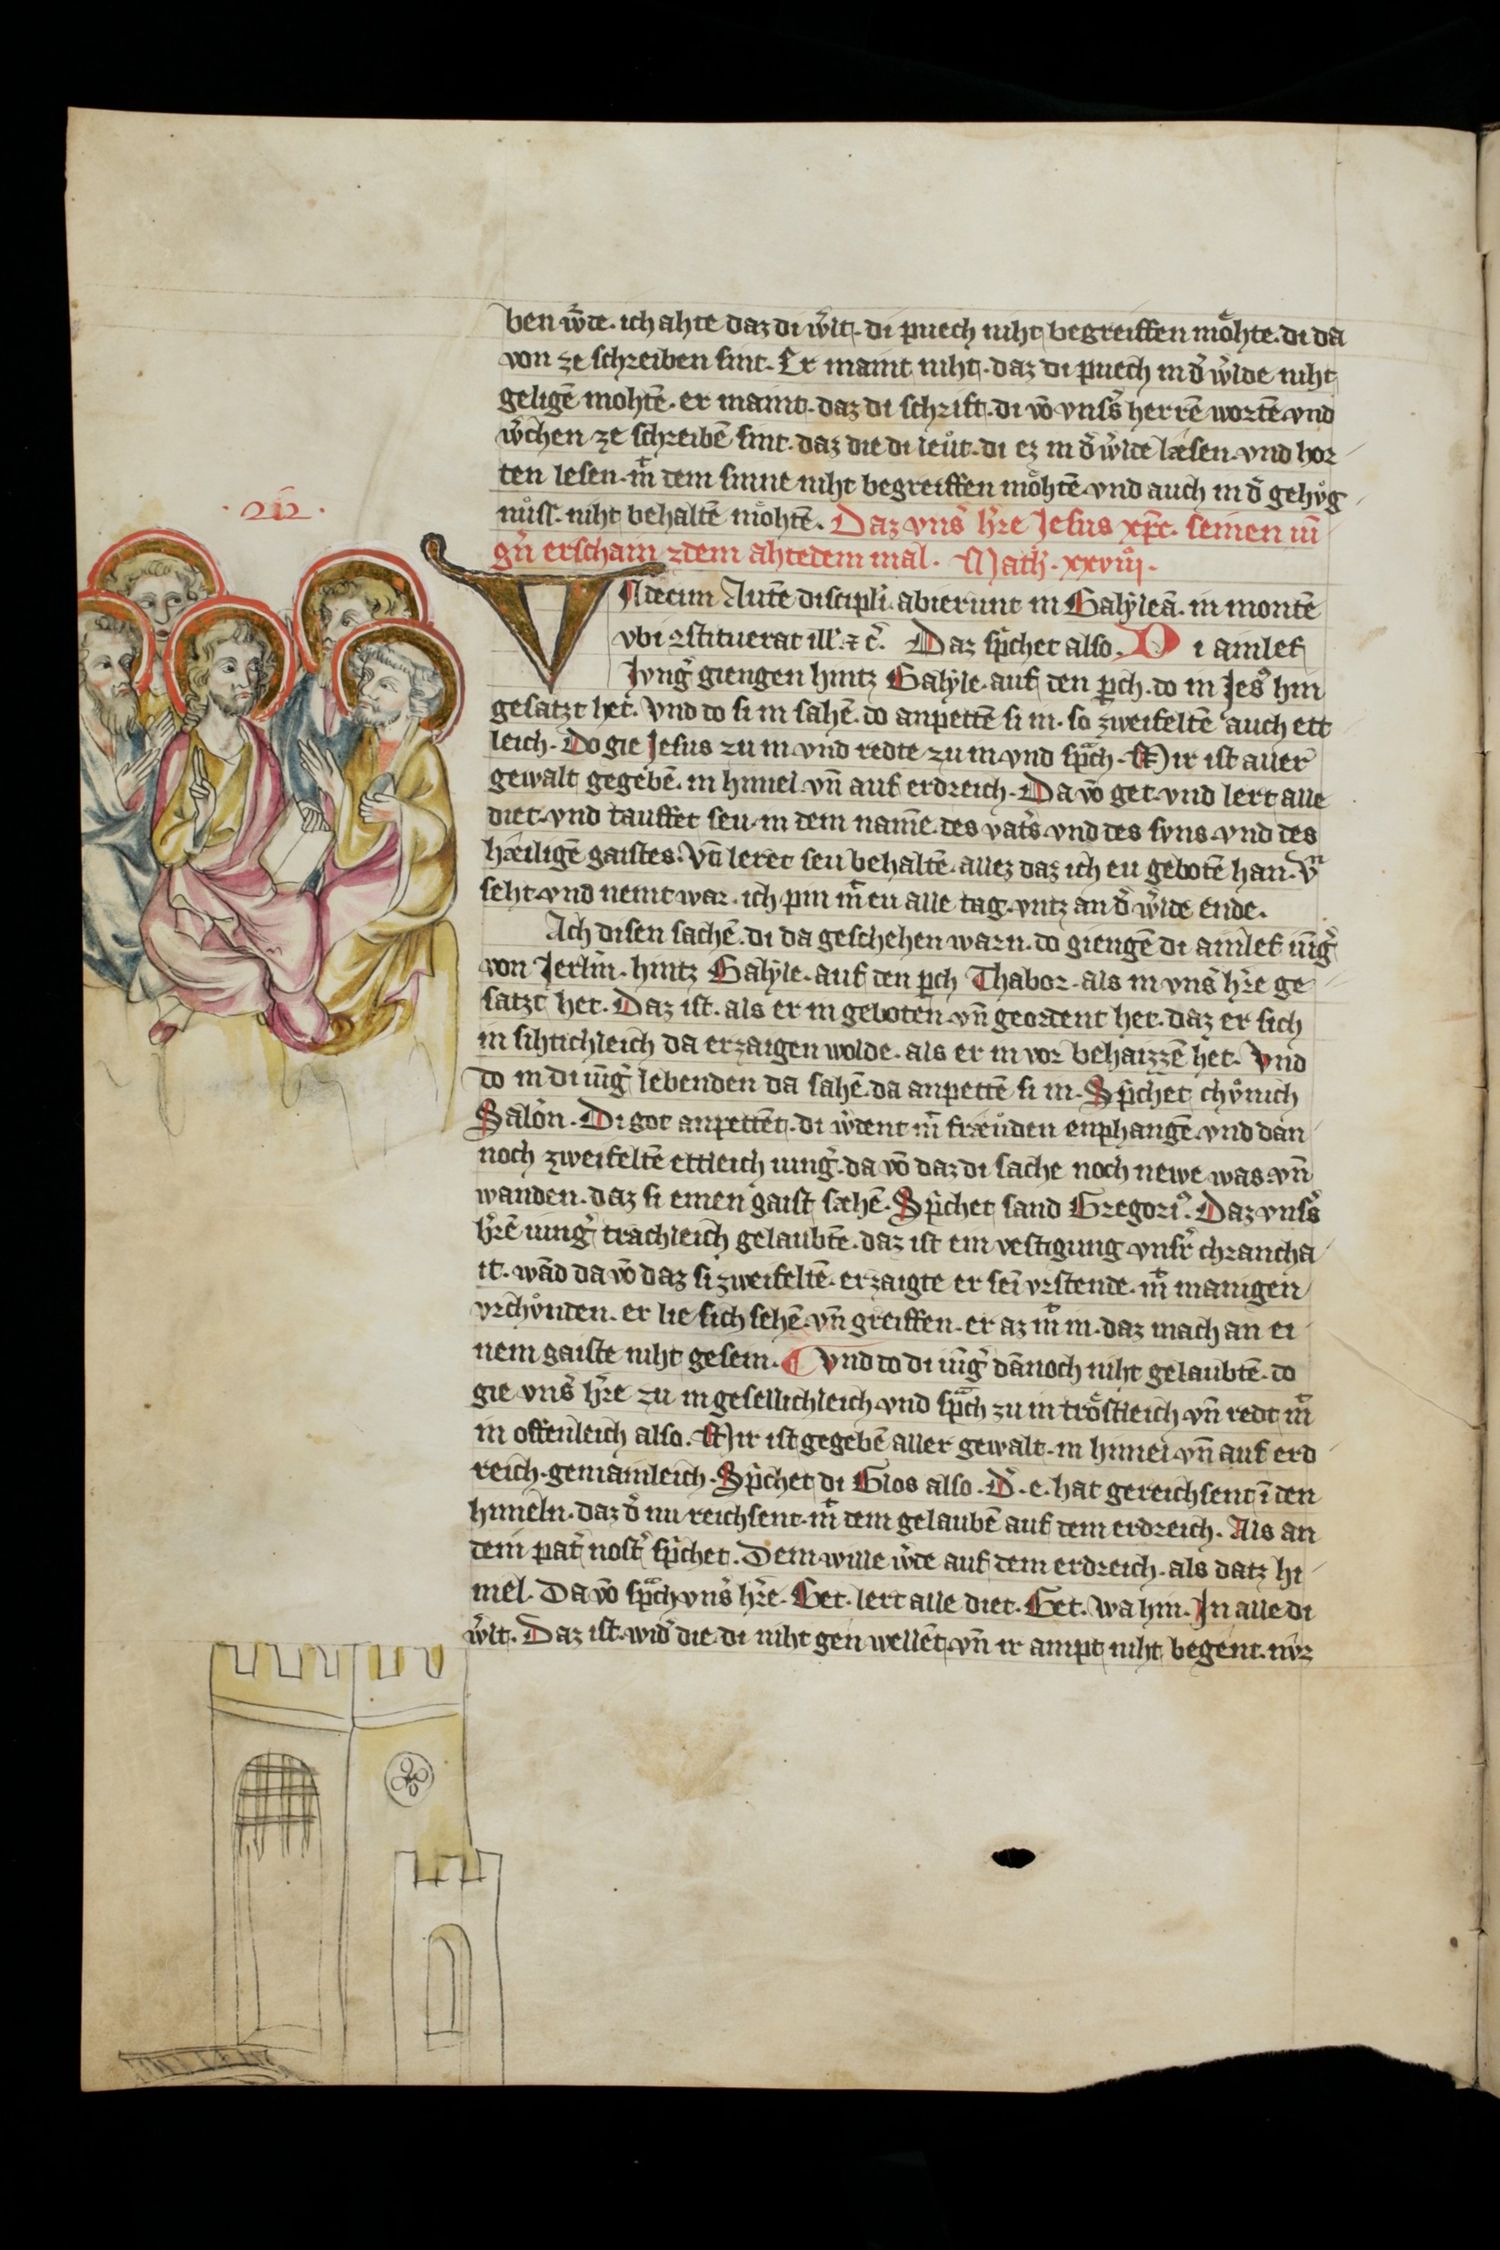 ben w̄de. ich ahte daz di w̓lt. di puech niht begreiffen moͤhte. di da
von ze schreiben sint. Er maint niht. daz di puech in d̓ w̓lde niht
geligē mohtē. er maint. daz di schrift. di vō vnsˢ herrē wortē vnd
w̓chen ze schreibē sint. daz die di leuͤt. di ez in d̓ w̓lde læsen. vnd hor
ten lesen. mͭ dem sinne niht begreiffen moͤhtē vnd auch in d̓ gehuͤg
nuͤss. niht behaltē moͤhtē. Daz vns̓ h̓re Jesus xp̄c. seinen iū
gn̓ erschain zdem ahtedem mal. Math̓. xxviij.
·212·
VNdecim Autē discipli̓. abierunt in Galyleā. in montē
vbi ꝯstituerat ill̓. ⁊ c̓. Daz sp̓chet also. Di ainlef
Jvng̓ giengen hintz Galyle. auf den p̓ch. do in Jesˢ hin
gesatzt het. Vnd do si in sahē. do anpettē si in. so zweifeltē auch ett
leich. Do gie Jesus zu in vnd redte zu in vnd spᵃch. Mir ist aller
gewalt gegebē. in himel vn̄ auf erdreich. Da vō get vnd lert alle
diet. vnd tauffet seu. in dem namē. des vatˢ. vnd des svns vnd des
hæiligē gaistes. Vn̄ leret seu behaltē. allez daz ich eu gebotē han. vn̄
seht. vnd nemt war. ich pin mͭ eu alle tag. vntz an d̓ w̓lde ende.
Ach disen sachē. di da geschehen warn. do giengē di ainlef iūg̓
von Jerlm̄. hintz Galyle. auf den p̓ch Thabor. als in vns̓ h̓re ge
satzt het. Daz ist. als er in geboten vn̄ geordent het. daz er sich
in sihtichleich da erzaigen wolde. als er in vor behaizzē het. Vnd
do in di iūg̓ lebenden da sahē. da anpettē si in. Sp̓chet chuͤnich
Salōn. Di got anpettēt. di w̓dent mͭ fræuͤden enphangē. vnd dan
noch zweifeltē ettleich iung̓. da vō daz di sache noch newe was. vn̄
wanden. daz si einen gaist sæhē. Sp̓chet sand Gregoriˢ. Daz vnsˢ
h̓rē iung̓ trachleich gelaubtē. daz ist ein vestigung vnsr̓ chrancha
it. wād da vō daz si zweifeltē. erzaigte er sei̓ vrstende. mͭ manigen
vrchuͤnden. er lie sich sehē. vn̄ greiffen. er az mͭ in. daz mach an ei
nem gaiste niht gesein. Vnd do di iūg̓ dānoch niht gelaubtē. do
gie vns̓ h̓re zu in gesellichleich vnd spᵃch zu in troͤstleich vn̄ redt mͭ
in offenleich also. Mir ist gegebē aller gewalt. in himel vn̄ auf erd
reich. gemainleich. Sp̓chet di Glos also. D̓. e. hat gereichsent ī den
himeln. daz d̓ nu reichsent. mͭ dem gelaubē auf dem erdreich. Als an
dem pat̓ nost̓ sp̓chet. Dein wille w̓de auf dem erdreich. als datz hi
mel. Da vō spᵃch vns̓ h̓re. Get. lert alle diet. Get. wa hin. In alle di
w̓lt. Daz ist. wid̓ die. di niht gen wellēt. vn̄ ir ampt niht begent. nvr